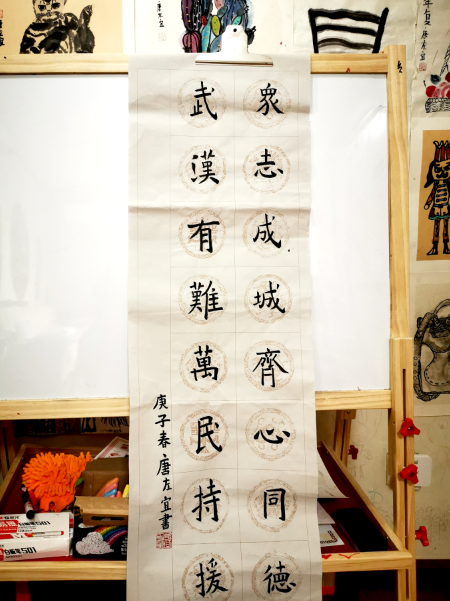 眾志成城齊心同德
武漢有難萬民持援
庚子春唐左宜書
501